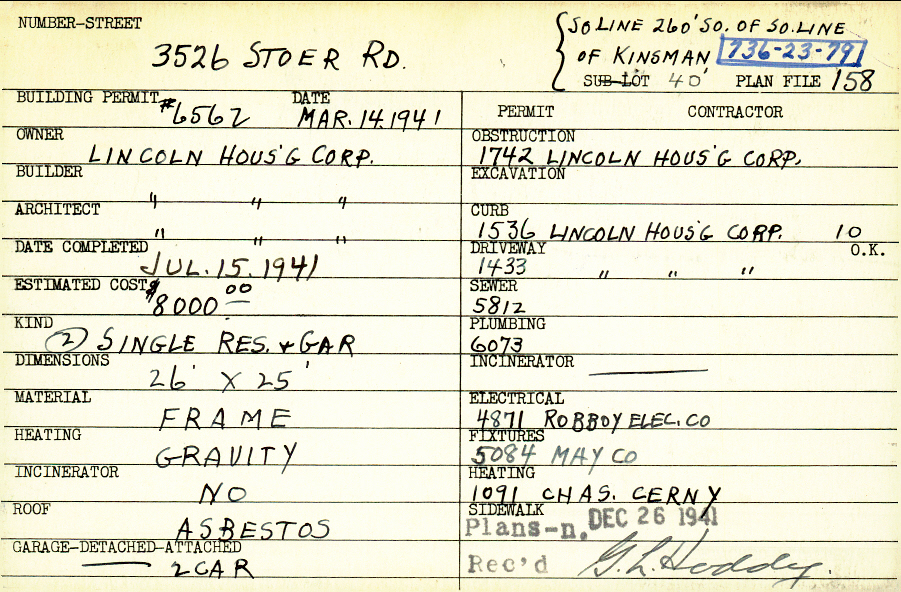 NUMBER-STREET
3526 STOER RD.
SO LINE 260' SO. OF SO. LINE
OF KINSMAN 736-23-79
SUB-LOT 40' PLAN FILE 158
BUILDING PERMIT #6562 DATE MAR. 14. 1941
OWNER
LINCOLN HOUS'G CORP.
BUILDER
" " "
ARCHITECT
" " "
DATE COMPLETED
JUL. 15. 1941
ESTIMATED COST
$8000 00
KIND
(2) SINGLE RES. & GAR
DIMENSIONS
26' X 25'
MATERIAL
FRAME
HEATING
GRAVITY
INCINERATOR
NO
ROOF
ASBESTOS
GARAGE-DETACHED-ATTACHED
2 CAR
PERMIT CONTRACTOR
OBSTRUCTION
1742 LINCOLN HOUS'G CORP.
EXCAVATION
CURB
1536 LINCOLN HOUS'G CORP. 10
DRIVEWAY O.K.
1433 " " "
SEWER
5812
PLUMBING
6073
INCINERATOR
ELECTRICAL
4871 ROBBOY ELEC. CO
FIXTURES
5084 MAY CO
HEATING
1091 CHAS. CERNY
SIDEWALK
Plans-n. DEC 26 1941
Rec'd